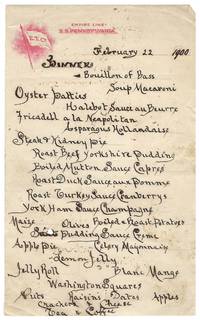 EMPIRE LINE
S.S. PENNSYLVANIA
E.T.Co
February 22 1900
Dinner
Bouillon of Bass
Soup Macaroni
Oyster Patties
Halebot Sauce au Beurre
Fricadell a la Neapolitan
Asparagus Hollandaise
Steak & Kidney Pie
Roast Beef Yorkshire Pudding
Boiled Mutton Sauce Capres
Roast Duck Sauce aux Pomme
Roast Turkey Sauce Cranberrys
York Ham Sauce Champagne
Maize Olives Boiled & Roast Potatoes
Pudding Sauce Creme
Apple Pie Celery Mayonnaix
Lemon Jelly
Jelly Roll Blanc Mange
Washington Squares
Nuts Raisins Dates Apples
Crackers & Cheese
Tea & Coffee